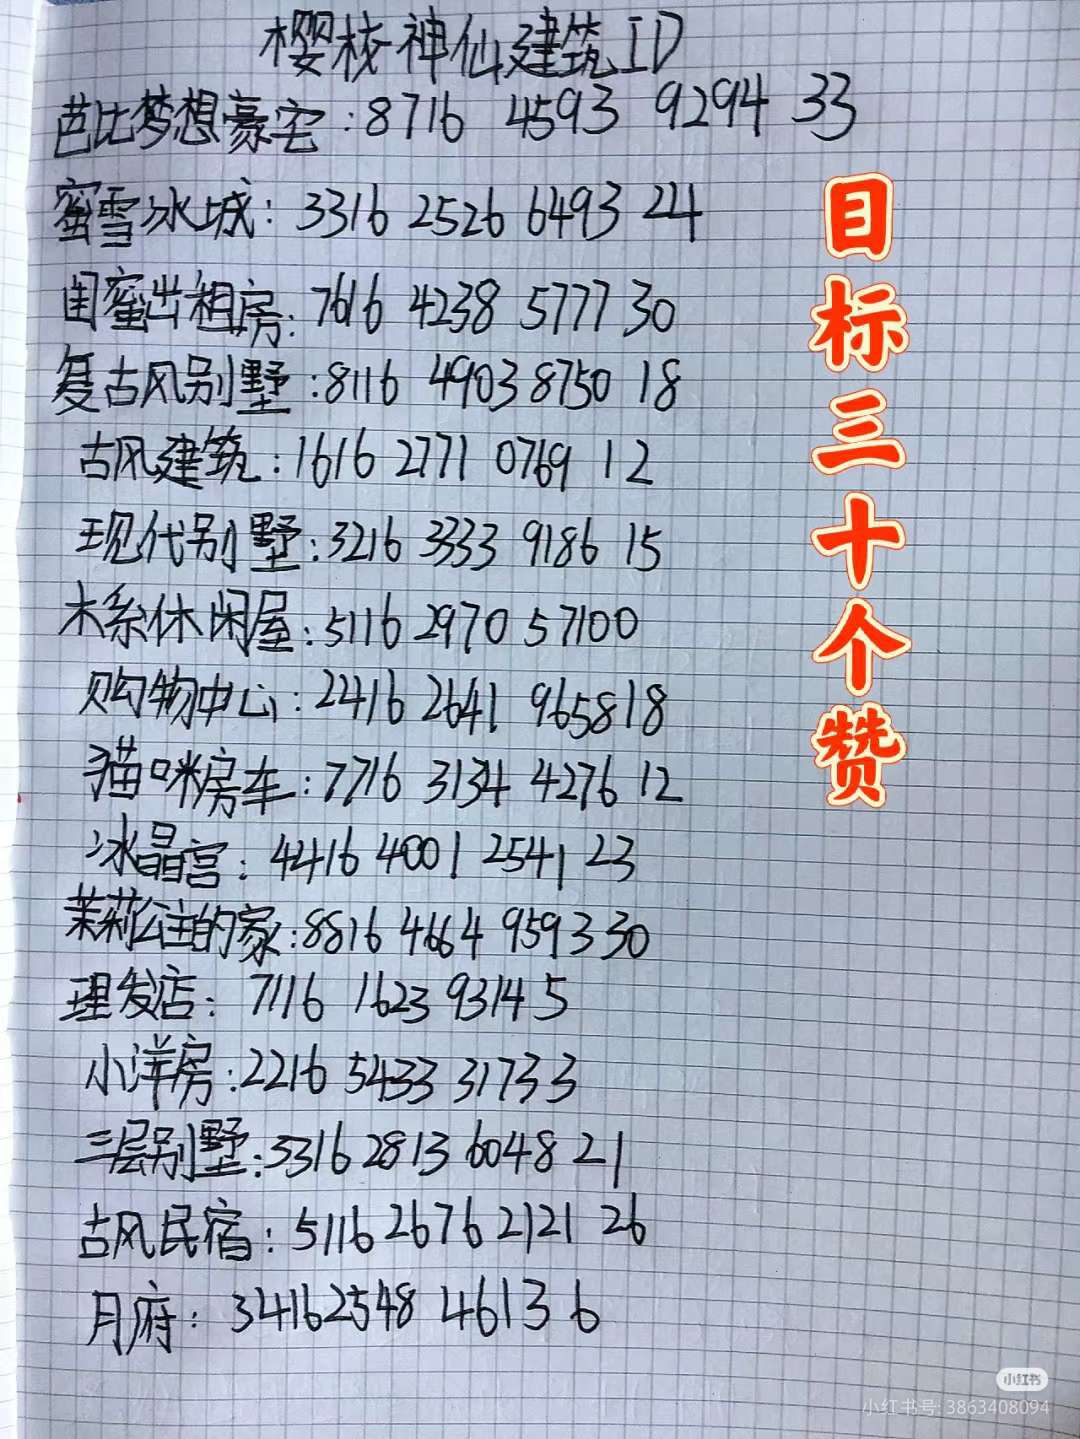 樱校神仙建筑ID
芭比梦想豪宅:8716 4593 9294 33
蜜雪冰城:3316 2526 6493 24
闺蜜出租房:7616 4238 5777 30
复古风别墅:8116 4903 8750 18
古风建筑:1616 2771 0769 12
现代别墅:3216 3333 9186 15
木系休闲屋:5116 2970 57100
购物中心:22416 2641 965818
猫咪房车:7716 3134 4276 12
冰晶宫:4416 4001 2541 23
茉莉公主的家:8816 4664 9593 30
理发店:7116 1623 9314 5
小洋房:2216 5433 3173 3
三层别墅:3316 2813 6048 21
古风民宿:5116 2676 2121 26
月府:34162548 4613 6
目标三十个赞
小红书
小红书号: 3863408094